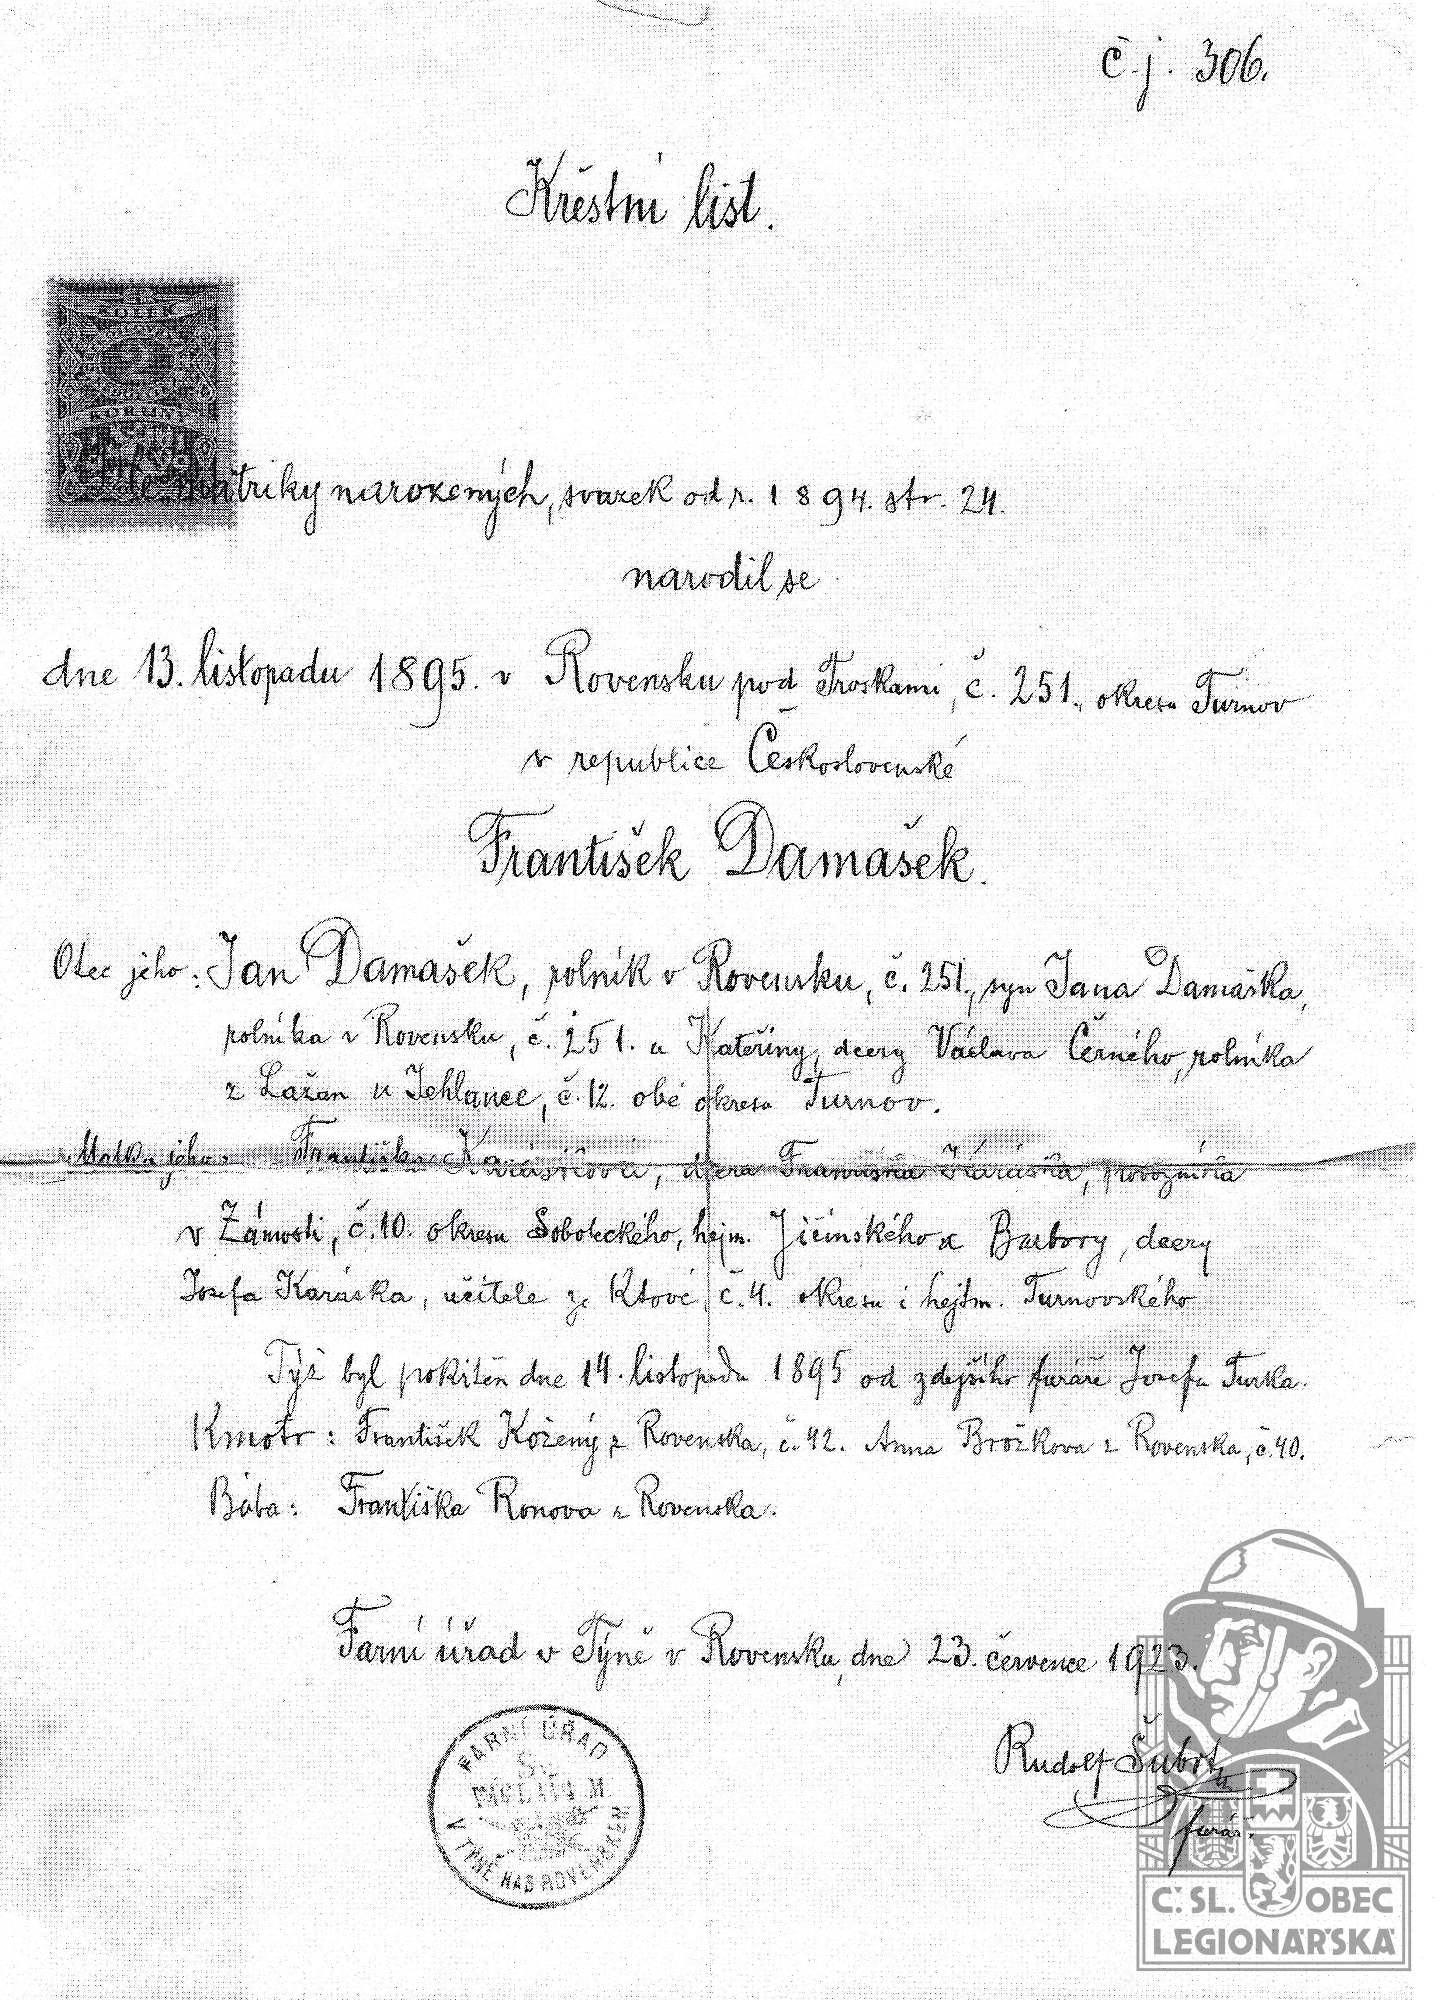 č. j. 306.
Křestní list.
KOLEK
Dle matriky narozených, svazek od r. 1894. str. 24.
narodil se
dne 13. listopadu 1895. v Rovensku pod Troskami, č. 251., okresu Turnov
v republice Československé
František Damašek.
Otec jeho: Jan Damašek, rolník v Rovensku, č. 251., syn Jana Damaška,
rolníka v Rovensku, č. 251. a Kateřiny, dcery Václava Černého, rolníka
z Lažan u Jehlance, č. 12. obé okresu Turnov.
Matka jeho: Františka Karásková, dcera Františka Karáska,
v Zámostí, č. 10. okresu Soboteckého, hejm. Jičínského a Barbory, dcery
Josefa Karáska, učitele ze Ktové, č. 4. okresu i hejtm. Turnovského
Týž byl pokřtěn dne 14. listopadu 1895 od zdejšího faráře Josefa Turka.
Kmotr: František Kožený z Rovenska, č. 42. Anna Brožkova z Rovenska, č. 40.
Bába: Františka Ronova z Rovenska.
Farní úřad v Týně v Rovensku, dne 23. července 1923.
Rudolf
farář.
FARNÍ ÚŘAD
SV.
V TÝNĚ NAD ROVENSKEM
Č. SL. OBEC
LEGIONÁŘSKÁ